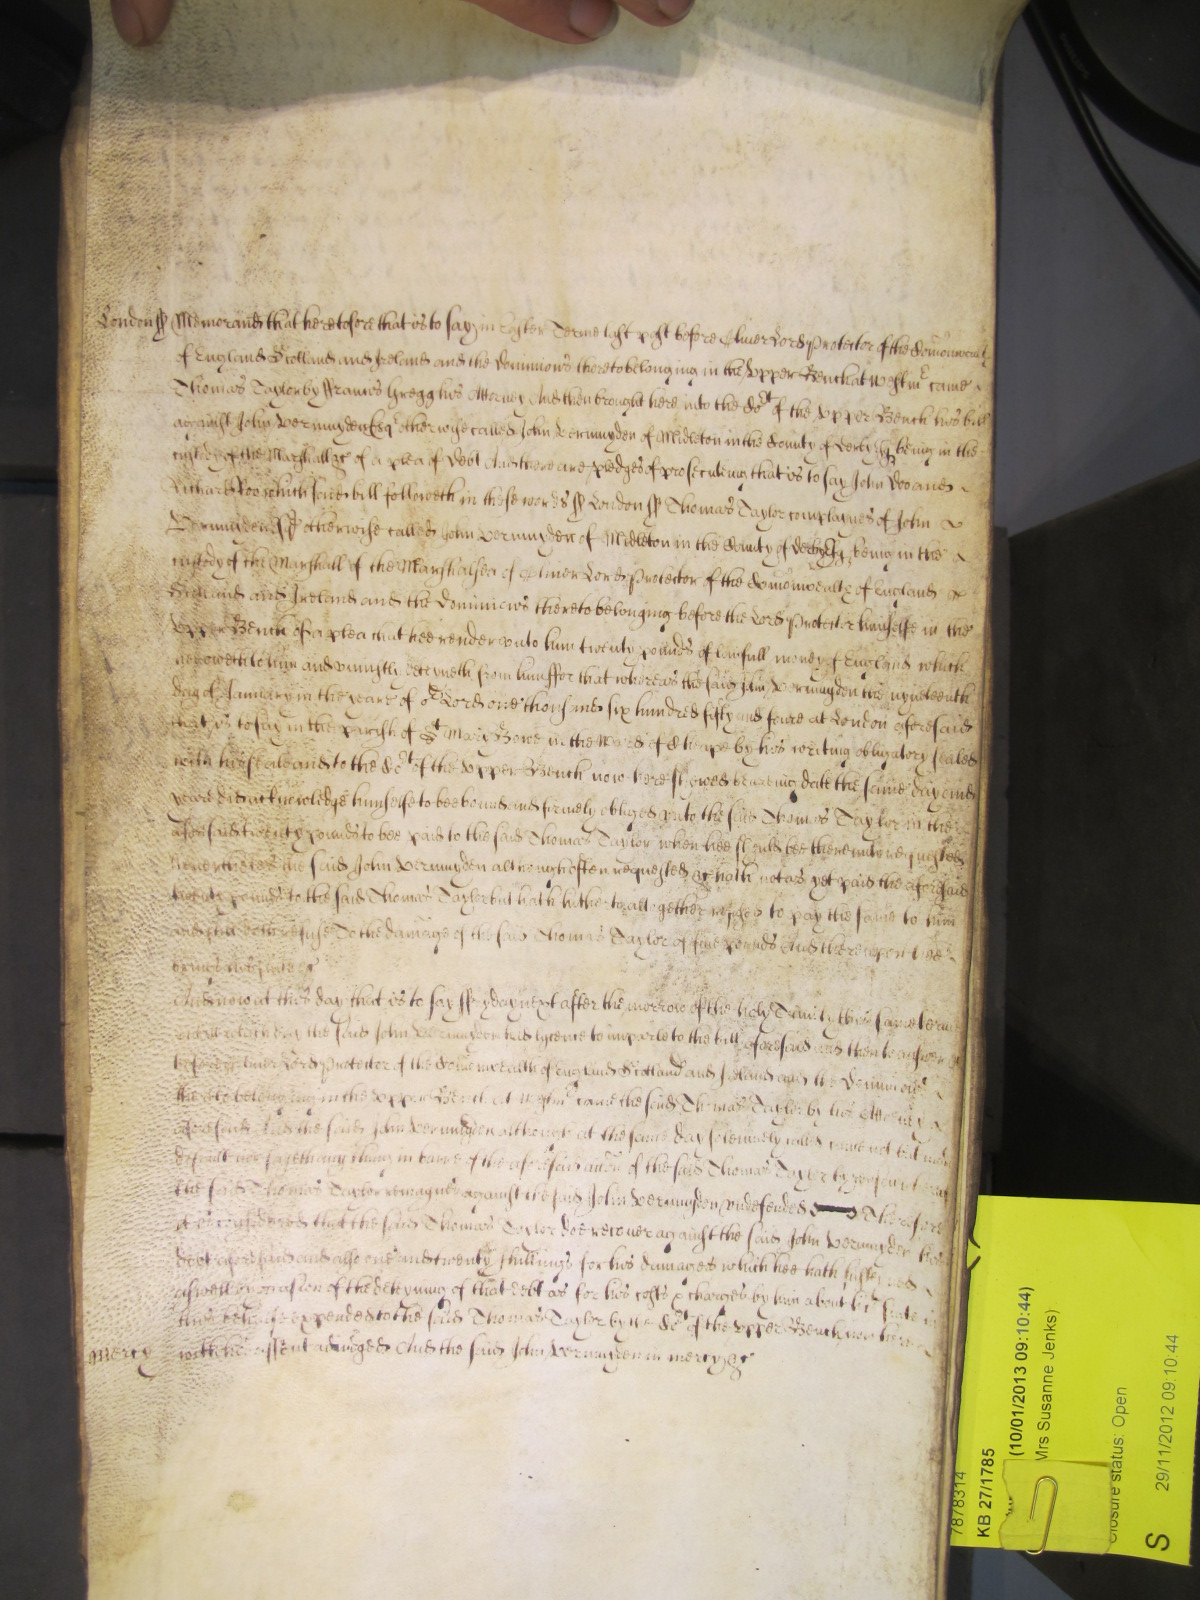 London ss Memorand that heretofore that is to say in Easter Terme last past before Oliver Lord Protector of the Comonwealth
of England Scotland and Ireland and the Dominions thereto belonging in the Upper Bench at Westmr came
Thomas Taylor by Francis Gregg his Attorney And then brought here into the Cort of the Upper Bench his bill
against John Vermuyden Esqr otherwise called John Vermuyden of Midleton in the County of Derby being in the
custody of the Marshall &c of a plea of debt And there are pledges of prosecuting that is to say John Doo and
Richard Roo which said bill followeth in these words ss London ss Thomas Taylor complaynes of John
Vermuyden otherwise called John Vermuyden of Midleton in the County of Derby being in the
custody of the Marshall of the Marshalsea of Oliver Lord Protector of the Comonwealth of England
Scotland and Ireland and the Dominions thereto belonging before the Lord Protector himselfe in the
Upper Bench of a plea that hee render unto him twenty pounds of lawfull money of England which
he oweth to him and uniustly deteyneth from him ffor that whereas the said John Vermuyden the nyneteenth
day of January in the yeare of or Lord one thousand six hundred fifty and foure at London aforesaid
that is to say in the parish of St Mary Bowe in the Ward of Cheape by his writing obligatory sealed
with his seale and to the Cort of the Upper Bench now here shewed beareing date the same day and
yeare did acknowledge himselfe to bee bound and firmely obliged unto the said Thomas Taylor in the
aforesaid twenty pounds to bee paid to the said Thomas Taylor when hee should bee thereunto requested
Neverthelesse the said John Vermuyden although often requested &c hath not as yet paid the aforesaid
twenty pounds to the said Thomas Taylor but hath hitherto altogether refused to pay the same to him
and still doth refuse To the damage of the said Thomas Taylor of five pounds And thereupon hee
brings his suite &c
And now at this day that is to say ffryday next after the morrow of the holy Trinity this same terme
untill which day the said John Vermuyden had lycence to imparle to the bill aforesaid and then to answer &c
before Oliver Lord Protector of the Comonwealth of England Scotland and Ireland and the Dominions
thereto belonging in the Upper Bench at Westmr came the said Thomas Taylor by his Attorney
aforesaid And the said John Vermuyden although at the same day solemnely called came not
nor say any thing in barre of the aforesaid accon of the said Thomas Taylor
the said Thomas Taylor remaynes against the said John Vermuyden undefended Therefore
it is considered that the said Thomas Taylor doe recover against the said John Vermuyden his
debt aforesaid and also one and twenty shillings for his damages which hee hath susteyned
aswell by occasion of the deteyning of that debt as for his costs & charges by him about his suite in
this behalfe expended to the said Thomas Taylor by the Cort of the Upper Bench now here
with his assent adiudged And the said John Vermuyden in mercy &c
Mercy
7878314
KB 27/1785
(10/01/2013 09:10:44)
Mrs Susanne Jenks)
Closure status: Open
S
29/11/2012 09:10:44